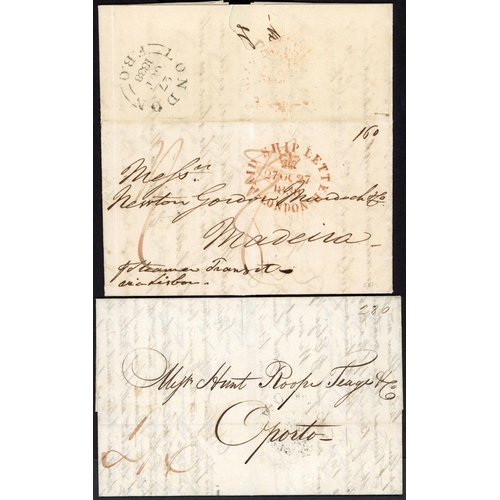 LONDON
27
OCT
1838
F.B.O
160
PAID SHIP LETTER
27 OC 27
1838
LONDON
Messrs
Newton Gordon Murdoch & Co
Madeira
p Steamer Transit
via Lisbon
280
Messrs Hunt Roope Teage & Co
Oporto